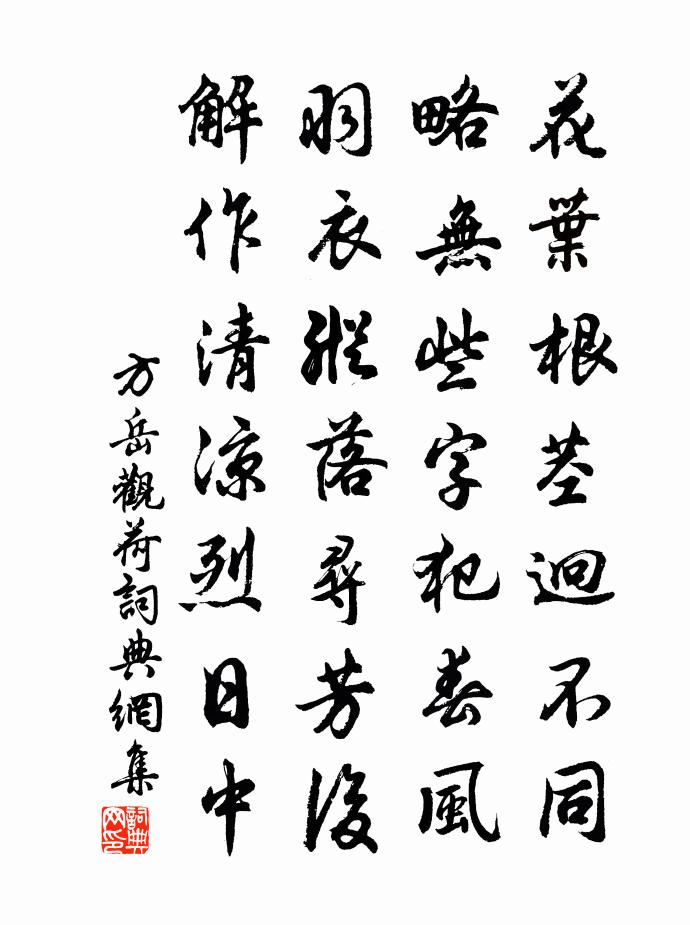 花葉根莖迥不同
略無些字犯春風
羽衣縱落尋芳後
解作清涼烈日中
方岳觀荷詞典網集
詞典網印